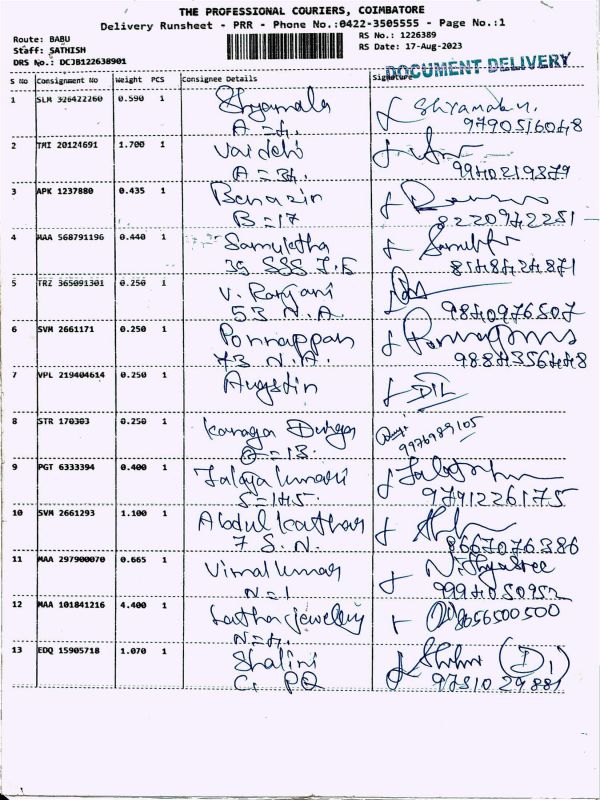 THE PROFESSIONAL COURIERS, COIMBATORE
Delivery Runsheet - PRR - Phone No.:0422-3505555 - Page No.:1
Route: BABU
Staff: SATHISH
DRS No.: DCJB122638901
RS No.: 1226389
RS Date: 17-Aug-2023
DOCUMENT DELIVERY
S No Consignment No Weight PCS Consignee Details Signature
1 SLM 326422260 0.590 1 Shyamala
A = 4.
9790516048
2 TMI 20124691 1.700 1 Vaidehi
A = 34.
9940219379
3 APK 1237880 0.435 1
B = 17
8220942251
4 MAA 568791196 0.440 1
39 SSS
5 TRZ 365091301 0.250 1 V. Ranjani
53 N.A.
9840976507
6 SVM 2661171 0.250 1 Ponnappan
73 N.A.
7 VPL 219404614 0.250 1 Augstin
DIL
8 STR 170303 0.250 1 Kanaga Durga
9976989105
9 PGT 6333394 0.400 1
S = 145.
9791226175
10 SVM 2661293 1.100 1 Abdul Kathar
7 S.N.
8667076386
11 MAA 297900070 0.665 1 Vimal Kumar
N = 1
Nithyasree
9994050952
12 MAA 101841216 4.400 1 jewellery
N = 4.
8056500500
13 EDQ 15905718 1.070 1 Shalini
9751029881